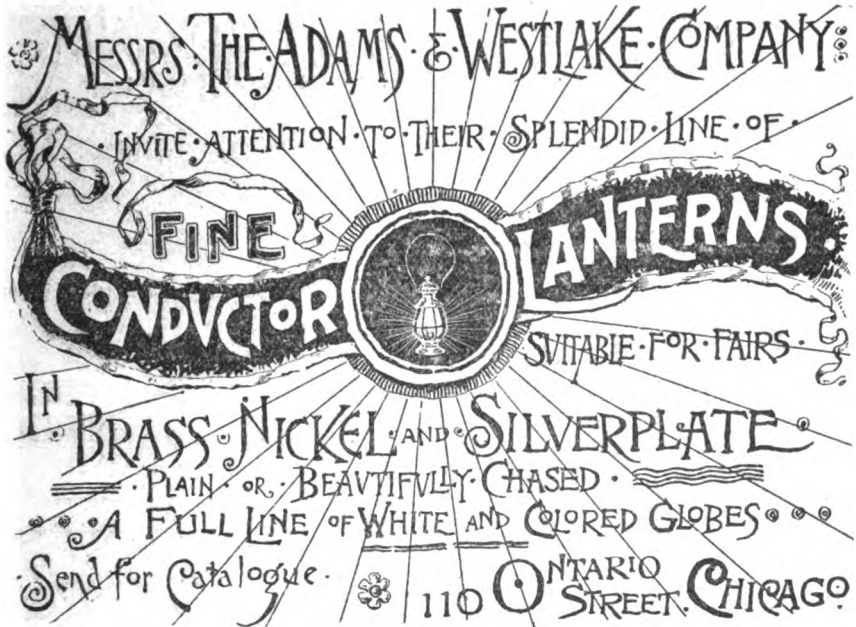 MESSRS·THE·ADAMS·&·WESTLAKE·COMPANY
·INVITE·ATTENTION·TO·THEIR·SPLENDID·LINE·OF·
FINE
CONDVCTOR LANTERNS·
SUITABLE·FOR·FAIRS·
IN
BRASS·NICKEL·AND·SILVERPLATE
·PLAIN·OR·BEAVTIFVLLY·CHASED·
A FULL LINE OF WHITE AND COLORED GLOBES
·Send for Catalogue·
110 ONTARIO STREET·CHICAGO·